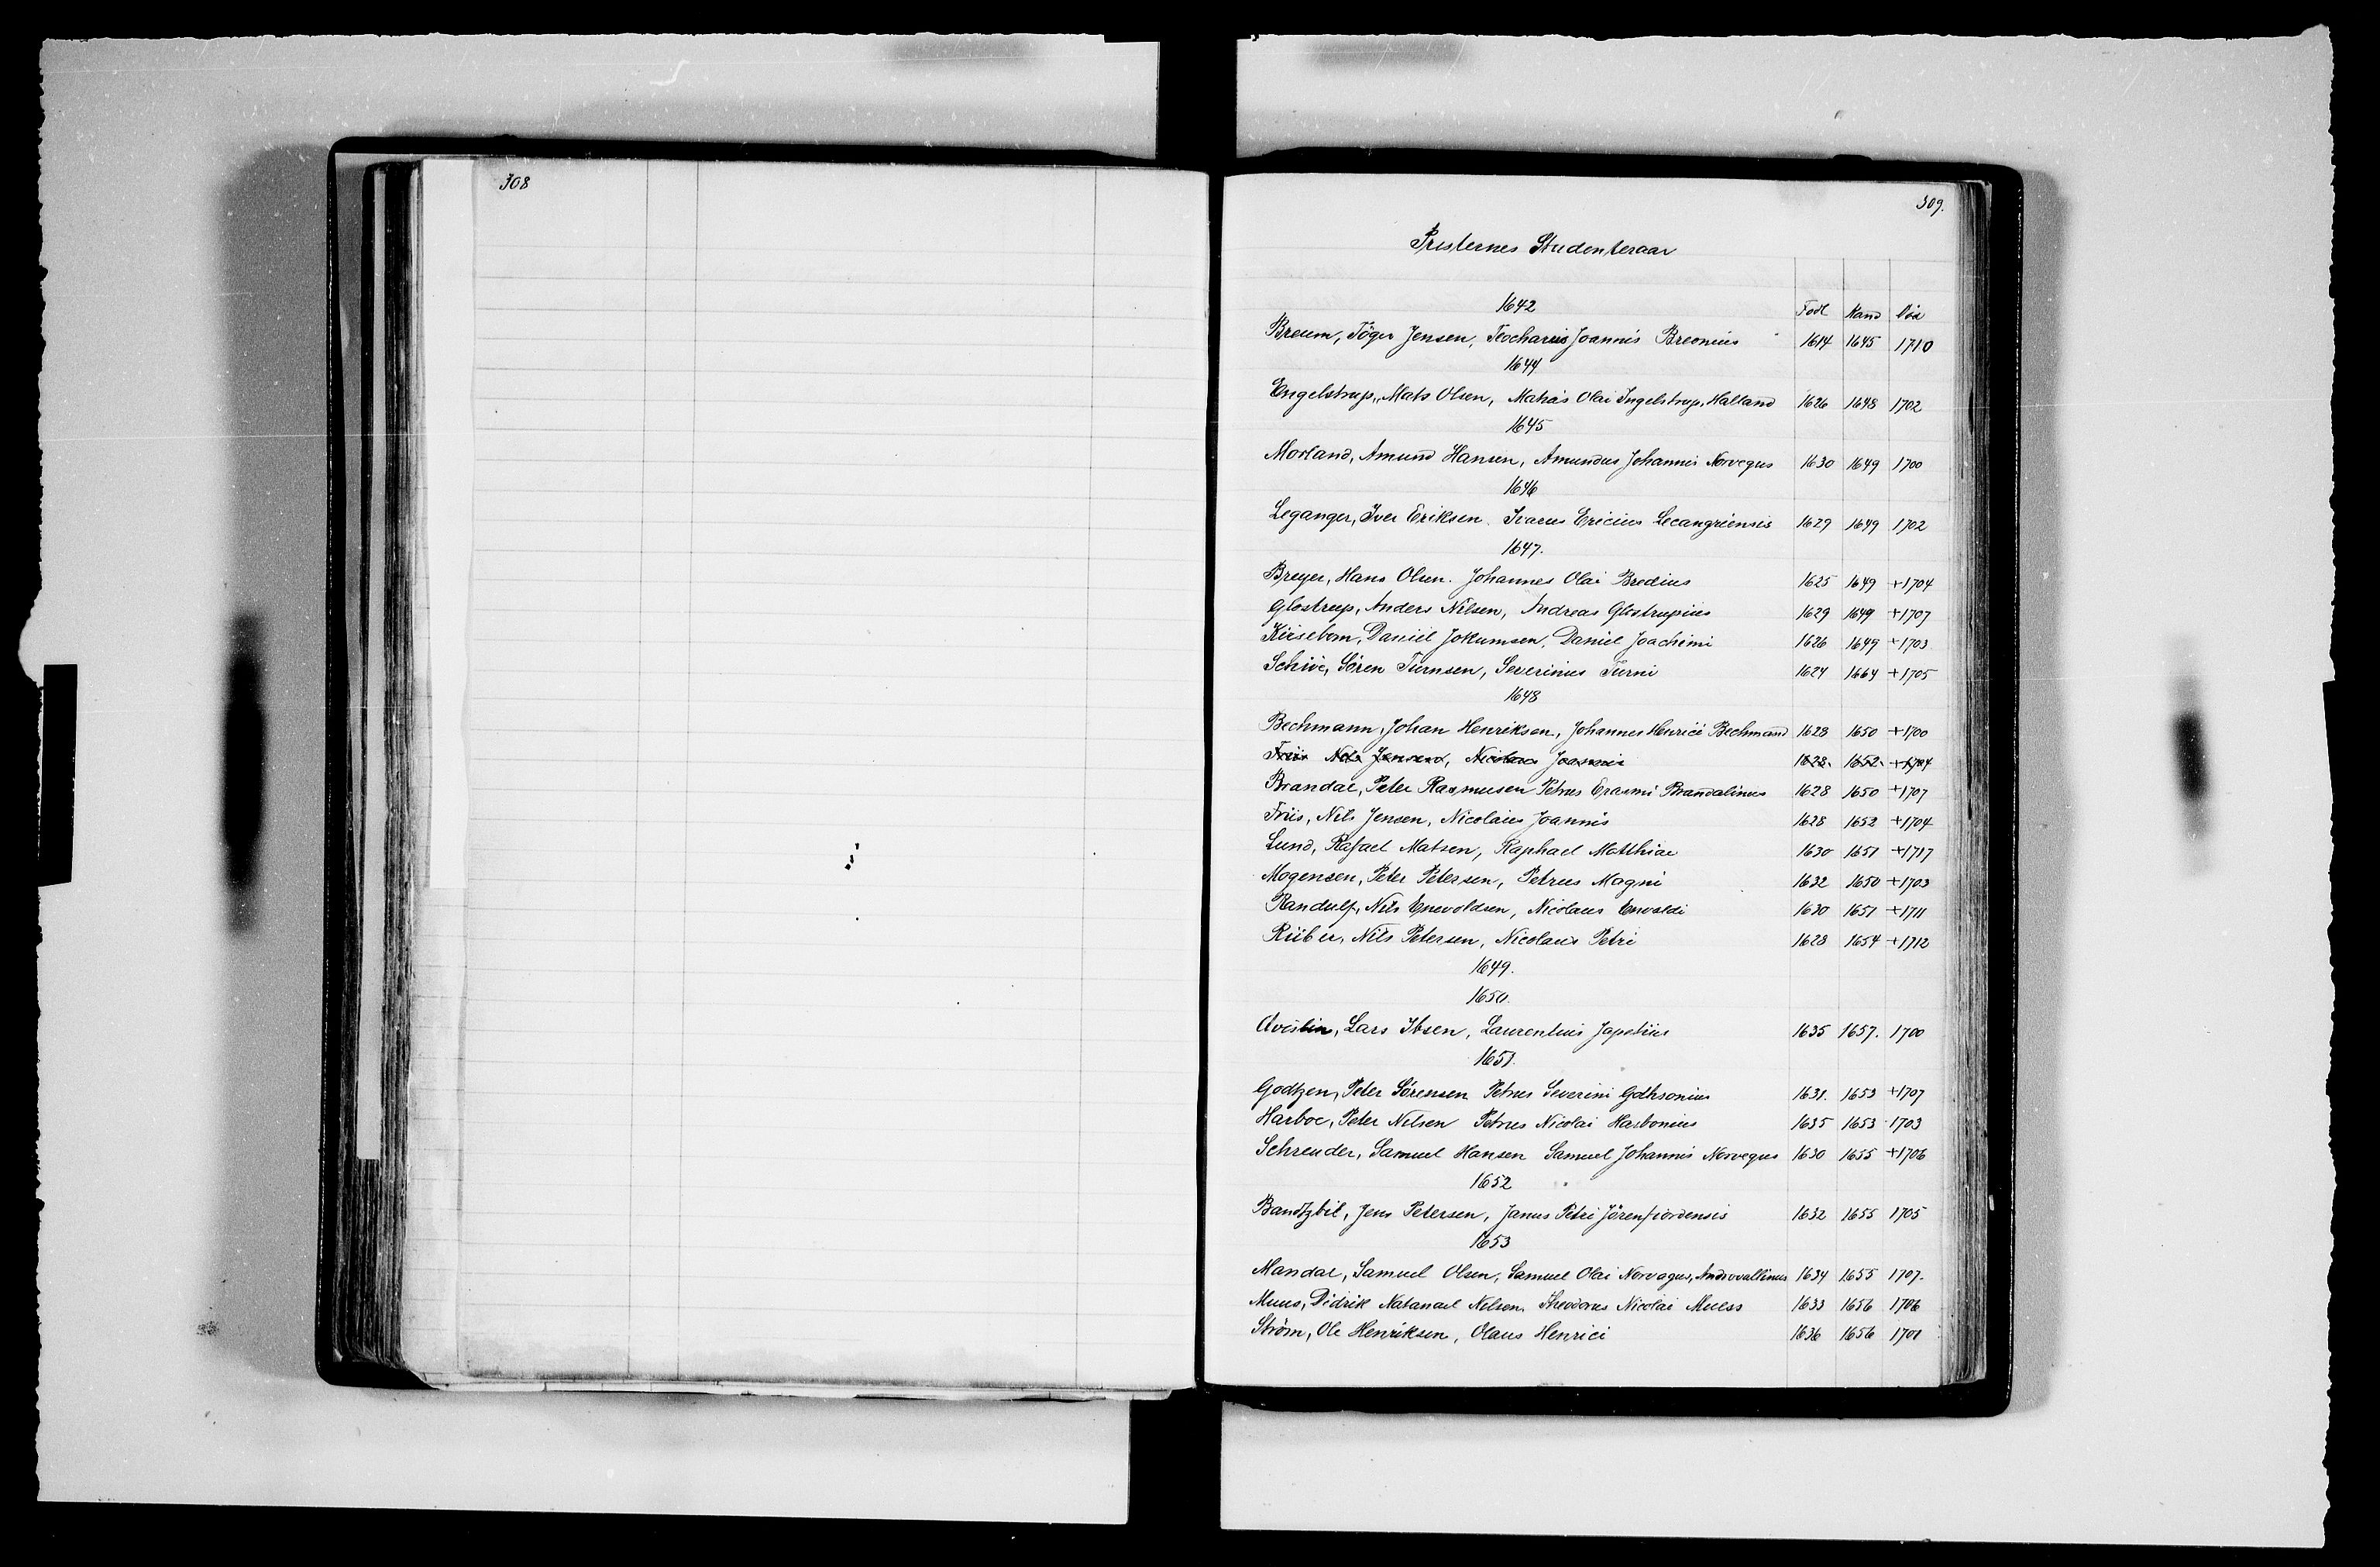 308
309.
Presternes Studenteraar
1642 Född Kand Död
Breum, Töger Jensen, Teocharus Joannis Breonius 1614 1645 1710
1644
Engelstrup, Mats Olsen, Matias Olai Ingelstrup, Halland 1626 1648 1702
1645
Morland, Amund Hansen, Amundus Johannis Norvegus 1630 1649 1700
1646
Leganger, Iver Eriksen. Ivarus Ericius Lecangriensis 1629 1649 1702
1647.
Breyer, Hans Olsen. Johannes Olai Bredius 1625 1649 +1704
Glostrup, Anders Nilsen, Andreas Glostrupius 1629 1649 +1707
Kirsebom, Daniel Jokumsen, Daniel Joachimi 1626 1649 +1703
Schive, Sören Turnsen, Severinus Turni 1624 1664 +1705
1648
Bechmann, Johan Henriksen, Johannes Henrici Bechmand 1628 1650 +1700
Friis Nils Jensen, Nicolaus Joannis 1628. 1652. +1704
Brandal, Peter Rasmusen Petrus Erasmi Brandalinus 1628 1650 +1707
Friis, Nils Jensen, Nicolaus Joannis 1628 1652 +1704
Lund, Rafael Matsen, Raphael Matthiae 1630 1651 +1717
Mogensen, Peter Petersen, Petrus Magni 1632 1650 +1703
Randulf, Nils Enevoldsen, Nicolaus Envoldi 1630 1651 +1711
Rüber, Nils Petersen, Nicolaus Petri 1628 1654 +1712
1649.
1650.
Avislin, Lars Ibsen, Laurentius Japetius 1635 1657. 1700
1651.
Godtzen, Peter Sörensen Petrus Severini Gothsonius 1631. 1653 +1707
Harboe, Peter Nilsen Petrus Nicolai Harbonius 1635 1653 1703
Schreuder, Samuel Hansen Samuel Johannis Norvegus 1630 1655 +1706
1652
Bandtzbil, Jens Petersen, Janus Petri Jörenfiordensis 1632 1655 1705
1653
Mandal, Samuel Olsen, Samuel Olai Norvagus, Androvallinus 1634 1655 1707.
Muus, Didrik Natanael Nilsen, Theodorus Nicolai Muess 1633 1656 1706
Ström, Ole Henriksen, Olaus Henrici 1636 1656 1701